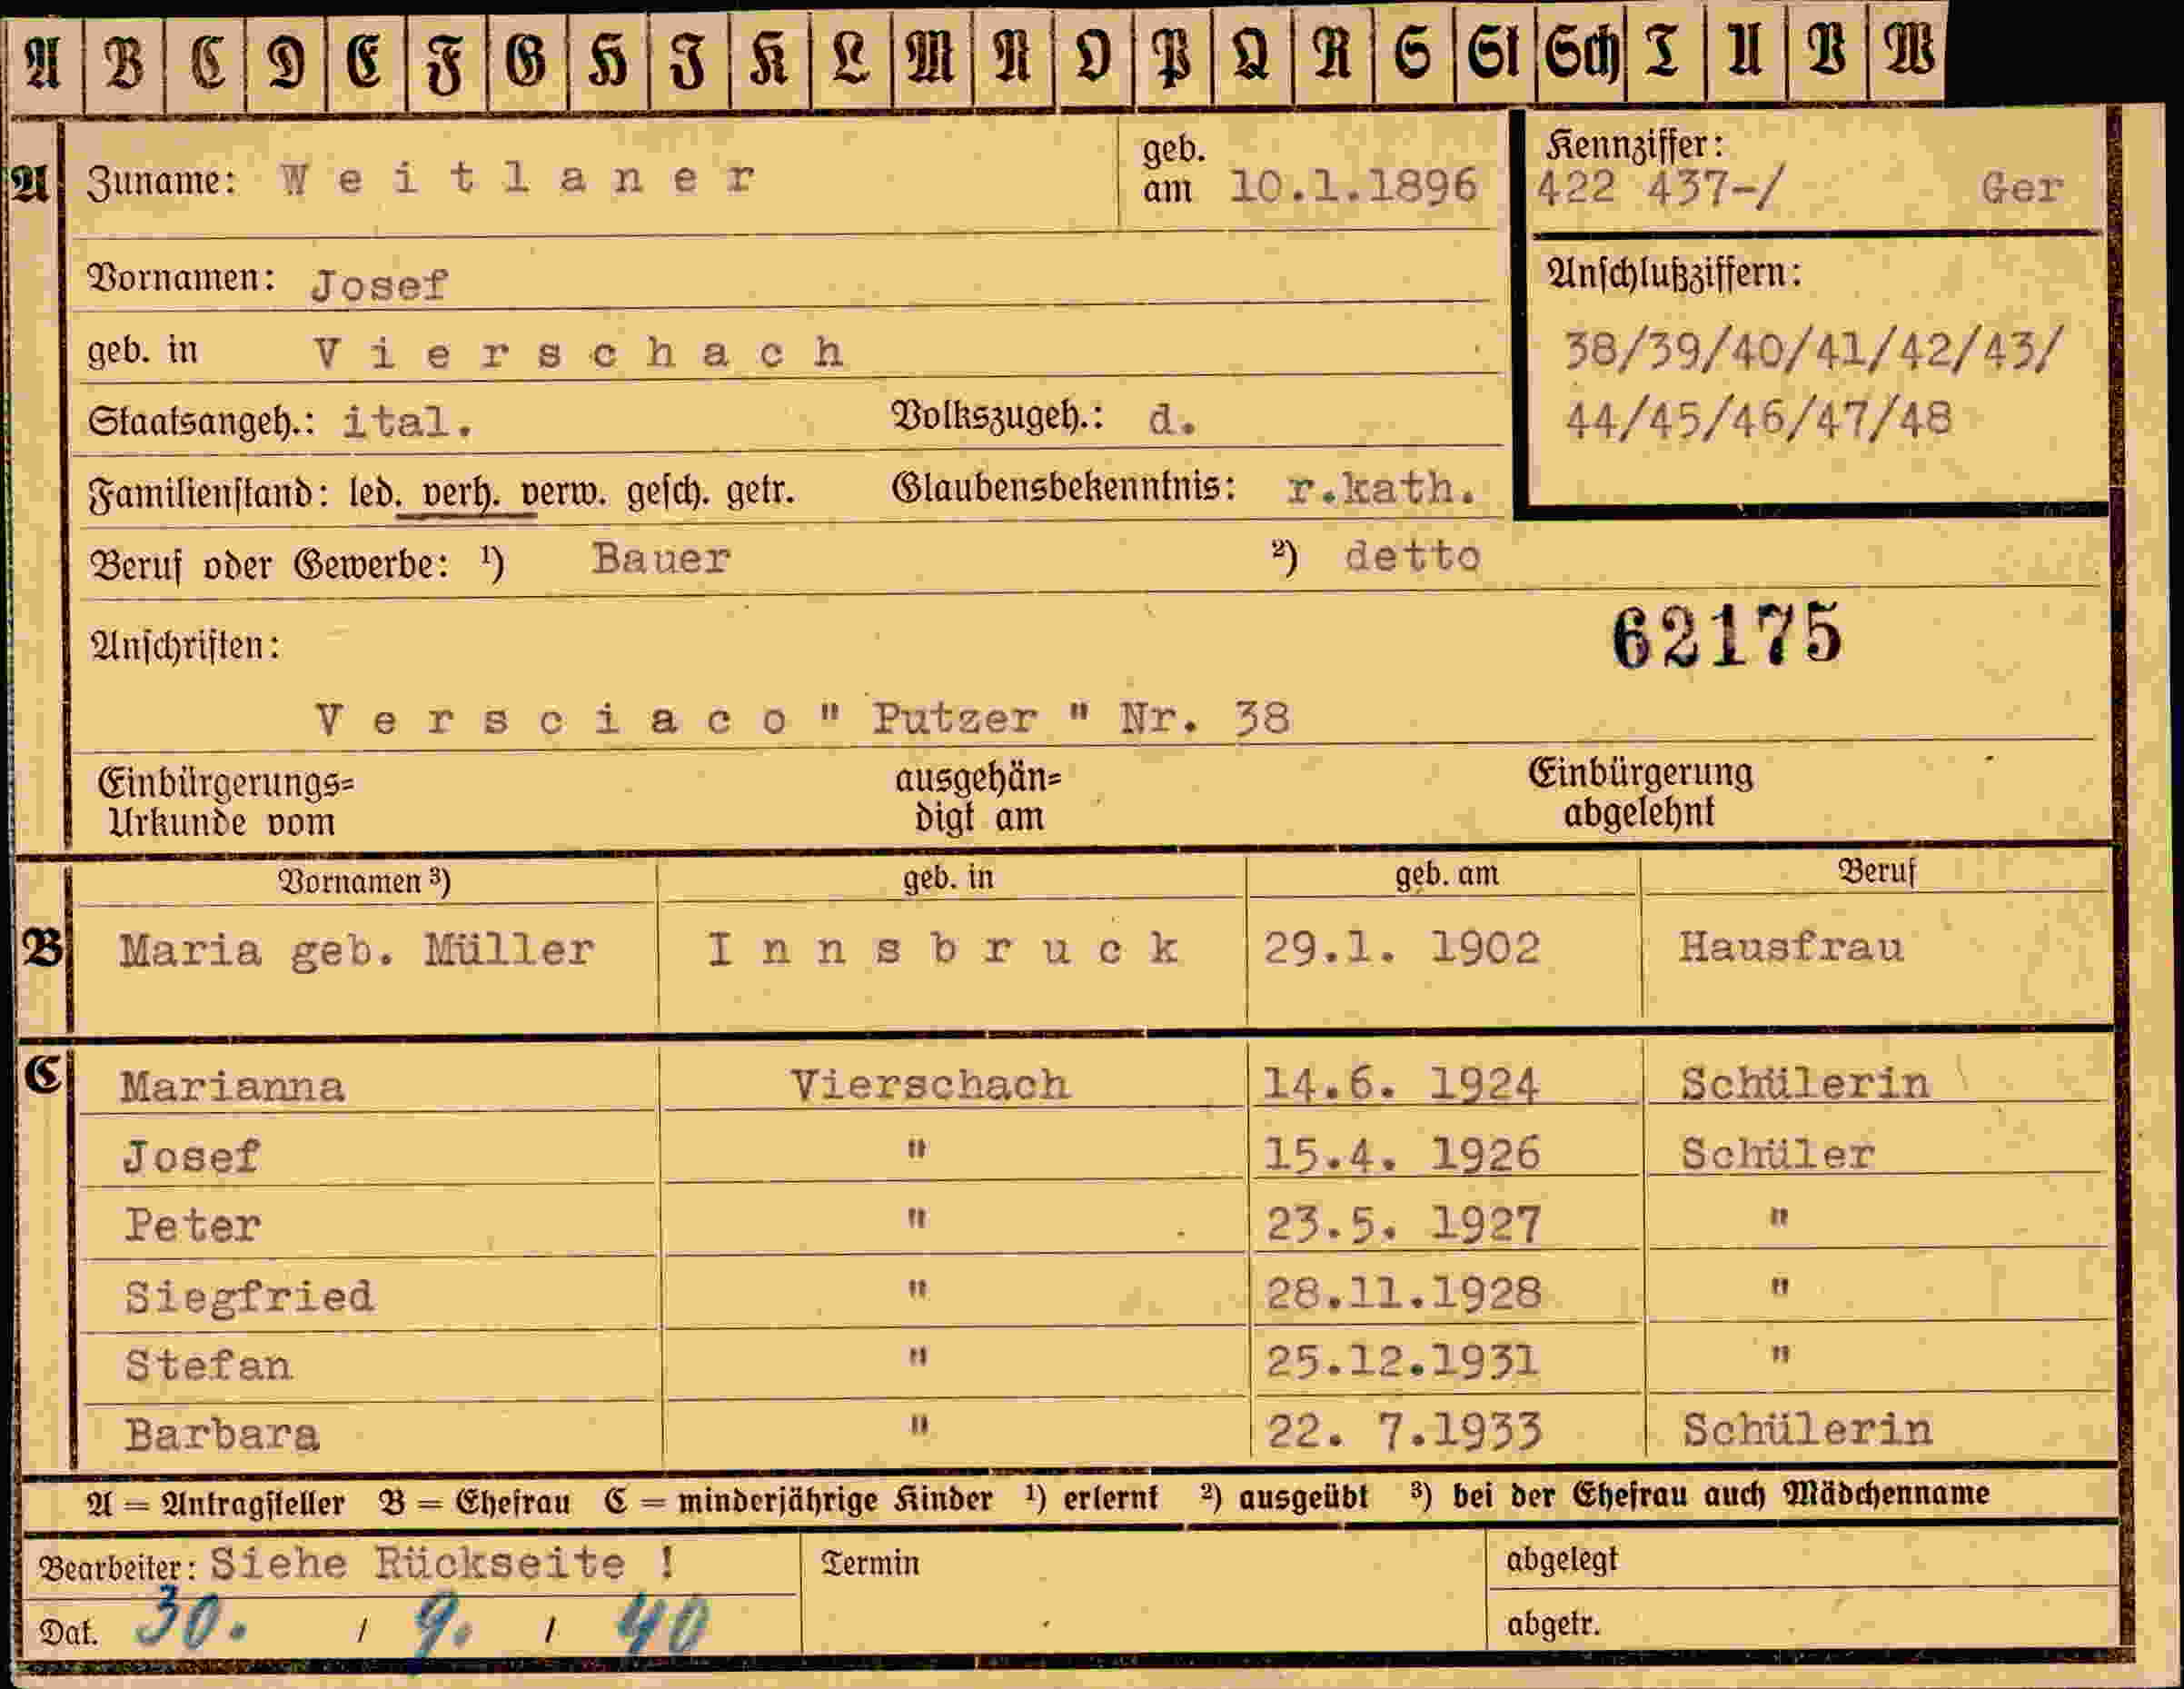 A B C D E F G H I K L M N O P Q R S St Sch T U V W
A Zuname: Weitlaner geb. am 10.1.1896 Kennziffer: 422 437-/ Ger
Vornamen: Josef Anschlußziffern:
geb. in Vierschach 38/39/40/41/42/43/
Staatsangeh.: ital. Volkszugeh.: d. 44/45/46/47/48
Familienstand: led. verh. verw. gesch. getr. Glaubensbekenntnis: r.kath.
Beruf oder Gewerbe: ¹) Bauer ²) detto
Anschriften: 62175
Versciaco " Putzer " Nr. 38
Einbürgerungs= ausgehän= Einbürgerung
Urkunde vom digt am abgelehnt
Vornamen ³) geb. in geb. am Beruf
B Maria geb. Müller Innsbruck 29.1. 1902 Hausfrau
C Marianna Vierschach 14.6. 1924 Schülerin
Josef " 15.4. 1926 Schüler
Peter " 23.5. 1927 "
Siegfried " 28.11.1928 "
Stefan " 25.12.1931 "
Barbara " 22. 7.1933 Schülerin
A = Antragsteller B = Ehefrau C = minderjährige Kinder ¹) erlernt ²) ausgeübt ³) bei der Ehefrau auch Mädchenname
Bearbeiter: Siehe Rückseite ! Termin abgelegt
Dat. 30. / 9. / 40 abgetr.